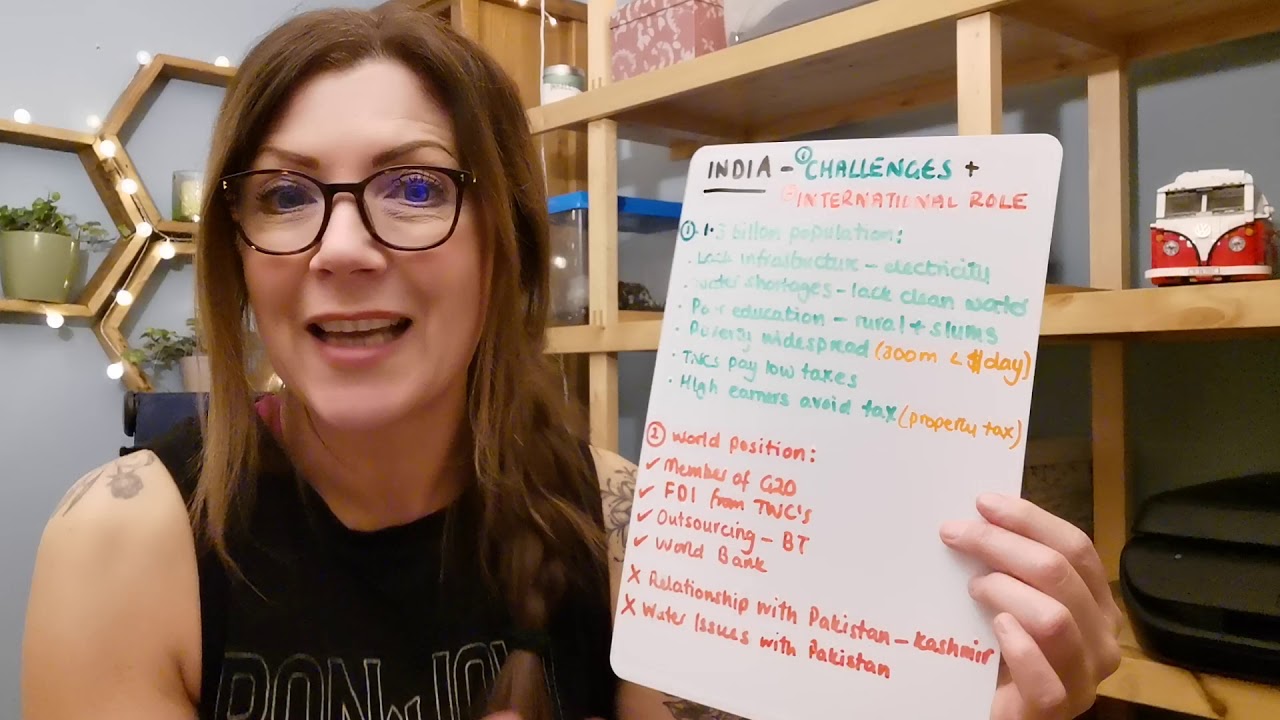 INDIA - ① CHALLENGES +
② INTERNATIONAL ROLE
① 1.3 billion population:
• Lack infrastructure - electricity
• water shortages - lack clean water
• Poor education - rural + slums
• Poverty widespread (300m < $1day)
• TNCs pay low taxes
• High earners avoid tax (property tax)
② World position:
✓ Member of G20
✓ FDI from TNC's
✓ Outsourcing - BT
✓ World Bank
X Relationship with Pakistan - Kashmir
X Water Issues with Pakistan
BON JOVI